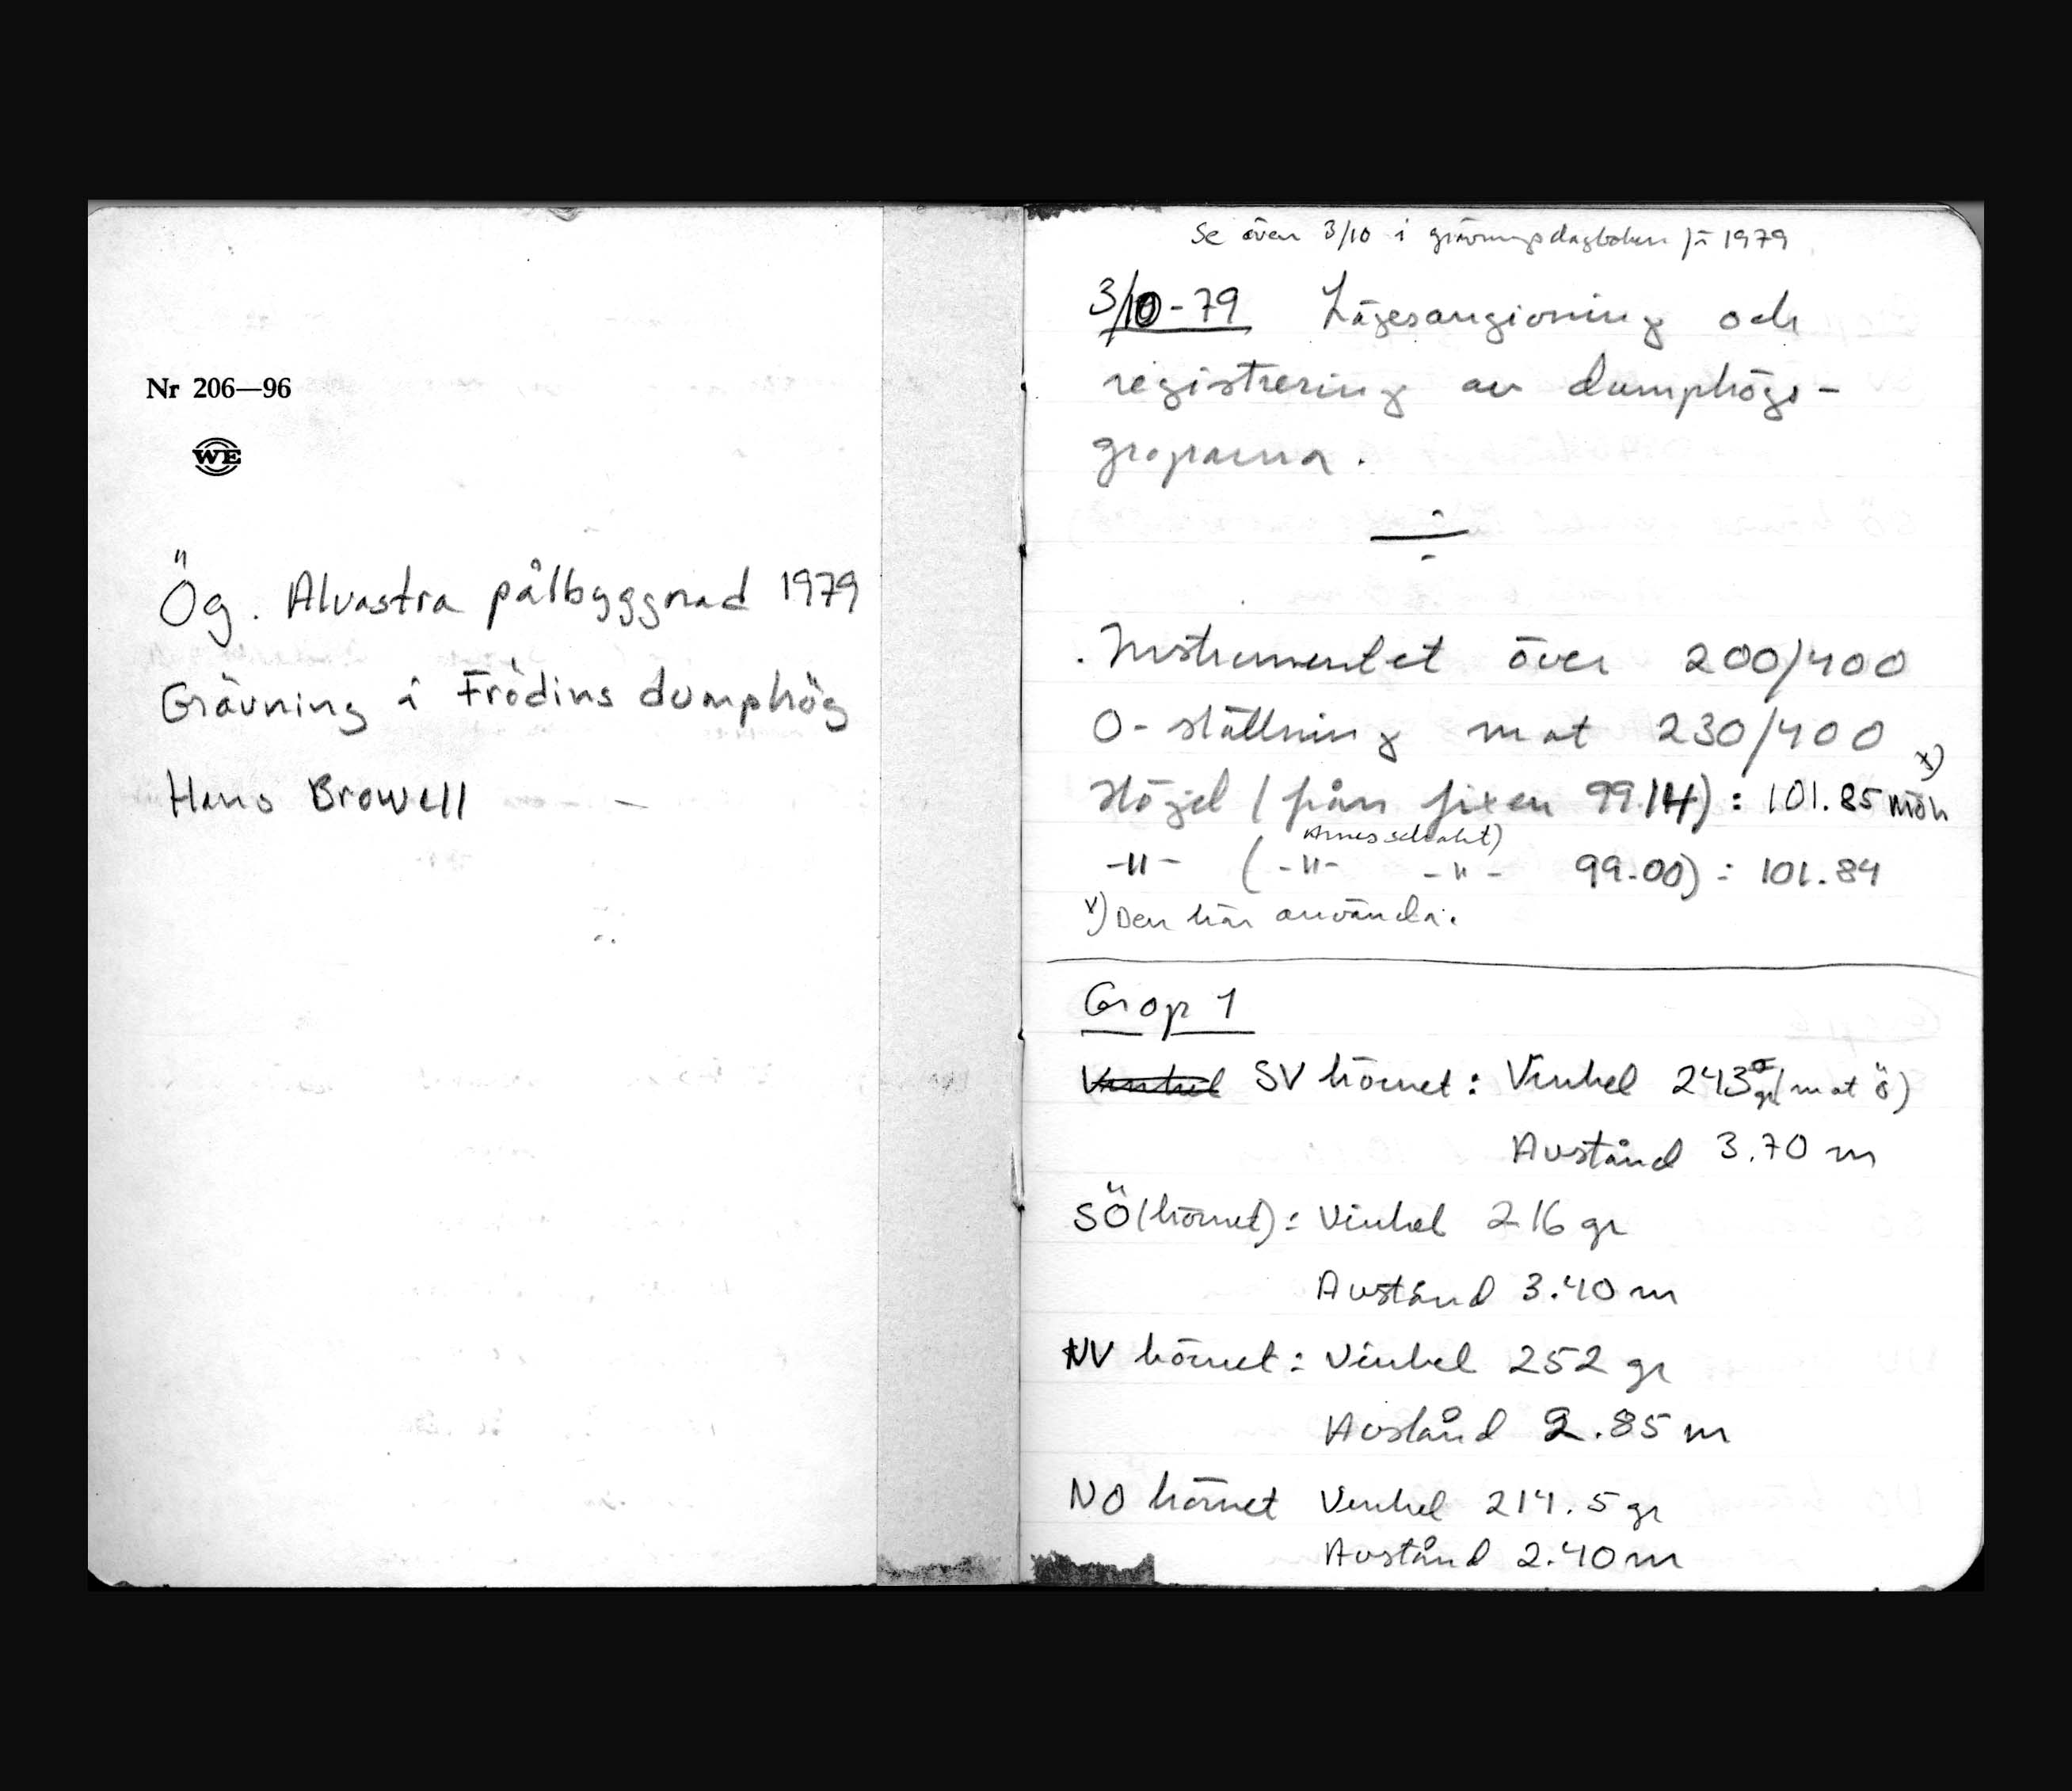 Nr 206—96
WE
Ög. Alvastra pålbyggnad 1979
Grävning i Frödins dumphög
Hans Browell
Se även 3/10 i grävningsdagboken 1979
3/10-79 Lägesangivning och
registrering av dumphögs-
groparna.
Instrumentet över 200/400
0-ställning mot 230/400
Höjd (från fixen 99.14): 101.85 möh x)
Arnes schakt)
-"- (-"- -"- 99.00): 101.84
x) Den här använda.
Grop 1
Vinkel SV hörnet: Vinkel 243 gr (mot ö)
Avstånd 3.70 m
SÖ (hörnet): Vinkel 216 gr
Avstånd 3.40 m
NV hörnet: Vinkel 252 gr
Avstånd 2.85 m
NO hörnet Vinkel 214.5 gr
Avstånd 2.40 m